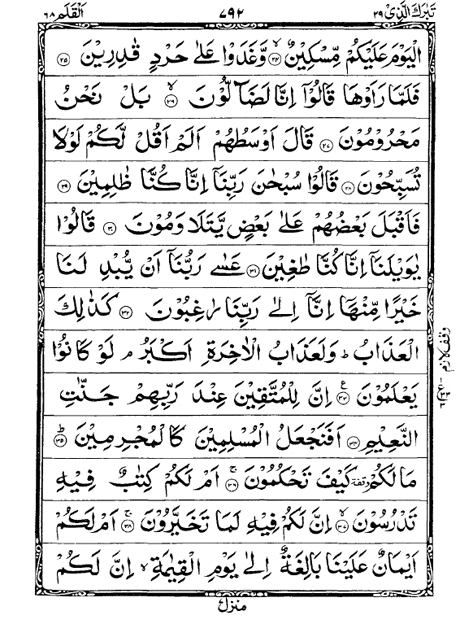 تَبٰرَكَ الَّذِیْ ٢٩ ٧٩٢ اَلْقَلَم ٦٨
الْيَوْمَ عَلَيْكُمْ مِّسْكِيْنٌ ۙ﴿٢٤﴾ وَّغَدَوْا عَلٰى حَرْدٍ قٰدِرِيْنَ ﴿٢٥﴾
فَلَمَّا رَاَوْهَا قَالُوْٓا اِنَّا لَضَآلُّوْنَ ۙ﴿٢٦﴾ بَلْ نَحْنُ
مَحْرُوْمُوْنَ ﴿٢٧﴾ قَالَ اَوْسَطُهُمْ اَلَمْ اَقُلْ لَّكُمْ لَوْلَا
تُسَبِّحُوْنَ ﴿٢٨﴾ قَالُوْا سُبْحٰنَ رَبِّنَآ اِنَّا كُنَّا ظٰلِمِيْنَ ﴿٢٩﴾
فَاَقْبَلَ بَعْضُهُمْ عَلٰى بَعْضٍ يَّتَلَاوَمُوْنَ ﴿٣٠﴾ قَالُوْا
يٰوَيْلَنَآ اِنَّا كُنَّا طٰغِيْنَ ﴿٣١﴾ عَسٰى رَبُّنَآ اَنْ يُّبْدِلَنَا
خَيْرًا مِّنْهَآ اِنَّآ اِلٰى رَبِّنَا رٰغِبُوْنَ ﴿٣٢﴾ كَذٰلِكَ
الْعَذَابُ ؕ وَلَعَذَابُ الْاٰخِرَةِ اَكْبَرُ ۘ لَوْ كَانُوْا
يَعْلَمُوْنَ ﴿٣٣﴾ اِنَّ لِلْمُتَّقِيْنَ عِنْدَ رَبِّهِمْ جَنّٰتِ
النَّعِيْمِ ﴿٣٤﴾ اَفَنَجْعَلُ الْمُسْلِمِيْنَ كَالْمُجْرِمِيْنَ ؕ﴿٣٥﴾
مَا لَكُمْ وقفة كَيْفَ تَحْكُمُوْنَ ۚ﴿٣٦﴾ اَمْ لَكُمْ كِتٰبٌ فِيْهِ
تَدْرُسُوْنَ ۙ﴿٣٧﴾ اِنَّ لَكُمْ فِيْهِ لَمَا تَخَيَّرُوْنَ ۚ﴿٣٨﴾ اَمْ لَكُمْ
اَيْمَانٌ عَلَيْنَا بَالِغَةٌ اِلٰى يَوْمِ الْقِيٰمَةِ ۙ اِنَّ لَكُمْ
وقف لازم
منزل